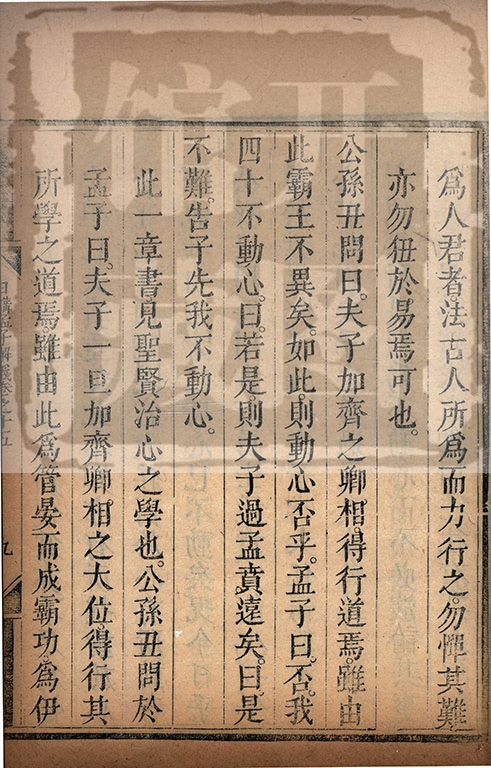 爲人君者。法古人所爲而力行之。勿憚其難
亦勿狃於易焉可也。
公孫丑問曰。夫子加齊之卿相。得行道焉。雖由
此霸王不異矣。如此。則動心否乎。孟子曰。否。我
四十不動心。曰。若是。則夫子過孟賁遠矣。曰。是
不難。告子先我不動心。
此一章書見聖賢治心之學也。公孫丑問於
孟子曰。夫子一旦加齊卿相之大位。得行其
所學之道焉。雖由此爲管晏而成霸功。爲伊
日講孟子解義卷之十五
九